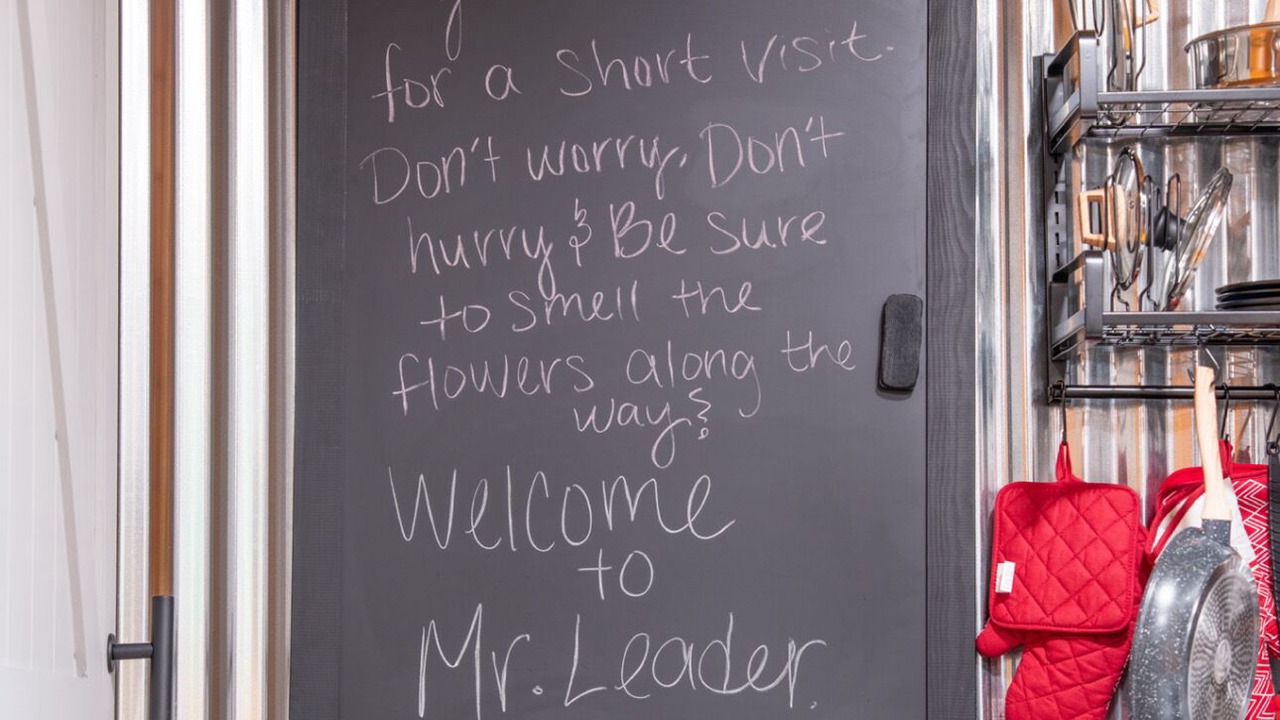 for a short visit.
Don't worry, Don't
hurry & Be sure
to smell the
flowers along the
way &
Welcome
to
Mr. Leader.